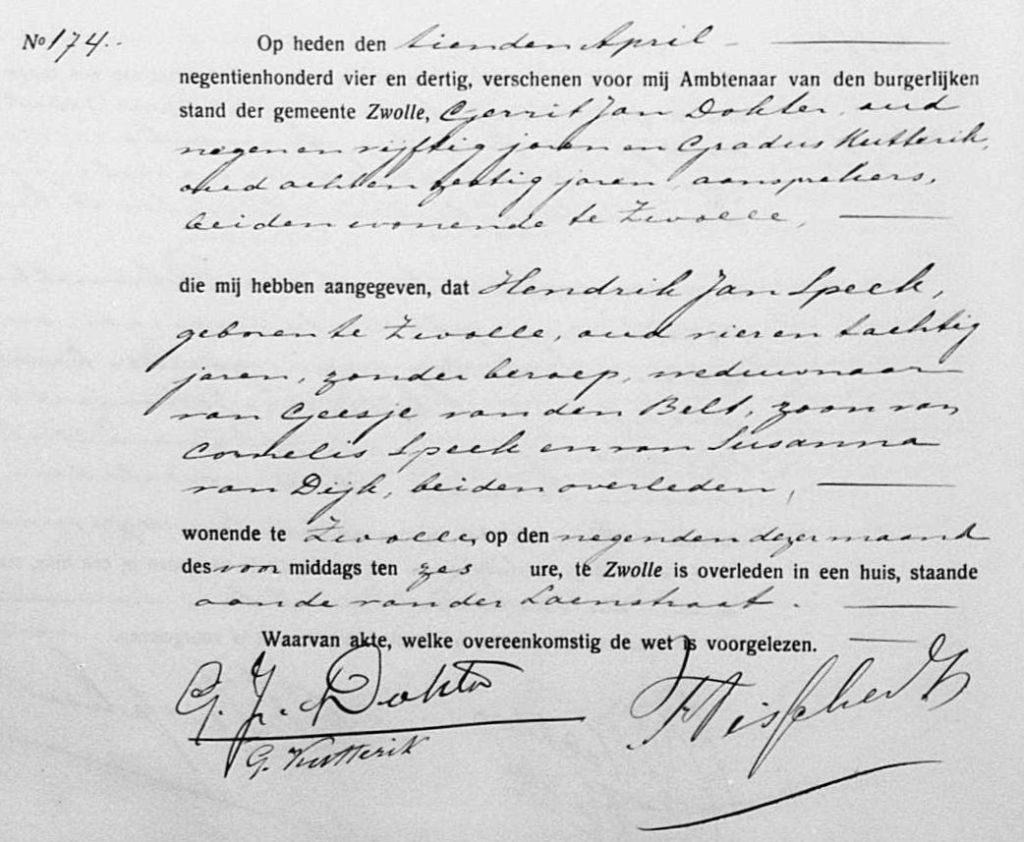 No 174.
Op heden den tienden April
negentienhonderd vier en dertig, verschenen voor mij Ambtenaar van den burgerlijken
stand der gemeente Zwolle, Gerrit Jan Dokter, oud
negen en vijftig jaren en Gradus Kutterik,
oud acht en jaren, aansprekers,
beiden wonende te Zwolle,
die mij hebben aangegeven, dat Hendrik Jan Speek,
geboren te Zwolle, oud vier en tachtig
jaren, zonder beroep, weduwnaar
van Geesje van den Belt, zoon van
Cornelis Speek en van Susanna
van Dijk, beiden overleden,
wonende te Zwolle, op den negenden dezer maand
des voor middags ten zes ure, te Zwolle is overleden in een huis, staande
aan de van der Laenstraat.
Waarvan akte, welke overeenkomstig de wet is voorgelezen.
G. J. Dokter
G. Kutterik